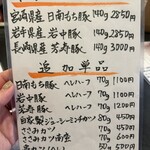 宮崎県産 日南もち豚 140g 2850円
岩手県産 岩中豚 140g 2850円
長崎県産 芳寿豚 140g 3000円
追加単品
日南もち豚 ヘレハーフ 70g 1100円
岩中豚 ヘレハーフ 70g 1100円
芳寿豚 ヘレハーフ 70g 1200円
自家製ジューシーミンチカツ 80g 450円
ささみカツ 75g 450円
ささみカツ 75g 500円